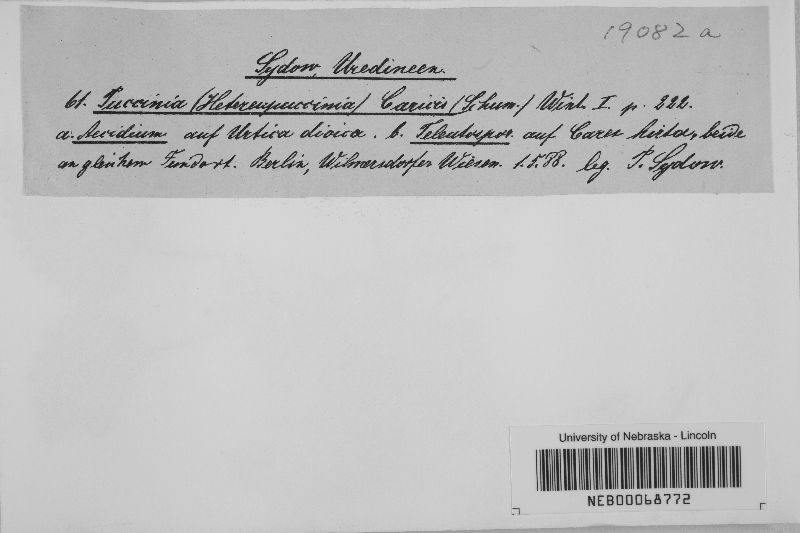 19082 a
Sydow, Uredineen.
61. Puccinia (Heteropuccinia) Caricis (Schum.) Wint. I. p. 222.
a. Aecidium auf Urtica dioica. b. Teleutospor. auf Carex hirta, beide
an gleichem Fundort. Berlin, Wilmersdorfer Wiesen. 1.5.88. leg. P. Sydow.
University of Nebraska - Lincoln
NEB00068772